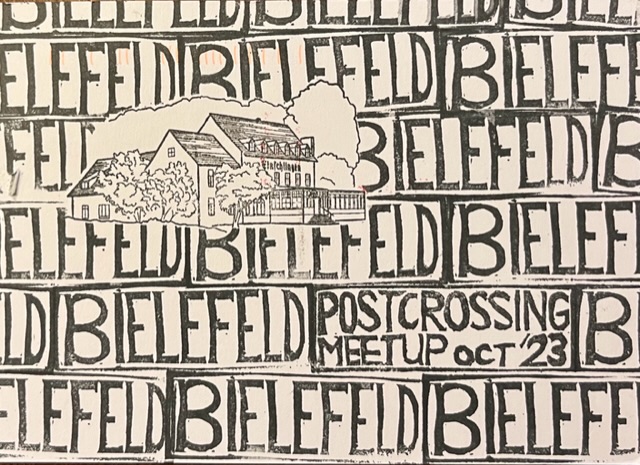 BIELEFELD BIELEFELD BIELEF
ELEFELD BIELEFELD BIELEFE
FEL BIELEFELD B
ELEFELD BIELEFELD BIELEF
LD BIELEFELD POSTCROSSING B
MEETUP OCT '23
ELEFELD BIELEFELD BIELEFE